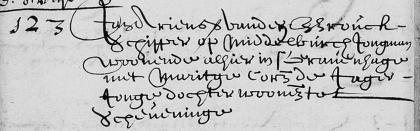 123 Jan Driensz vander Schrouck
Schipper op Middelburch Jongman
woonende alhier in s Gravenhage
met Maritge Cors de Jager
Jonge dochter woont tot
Scheveninge